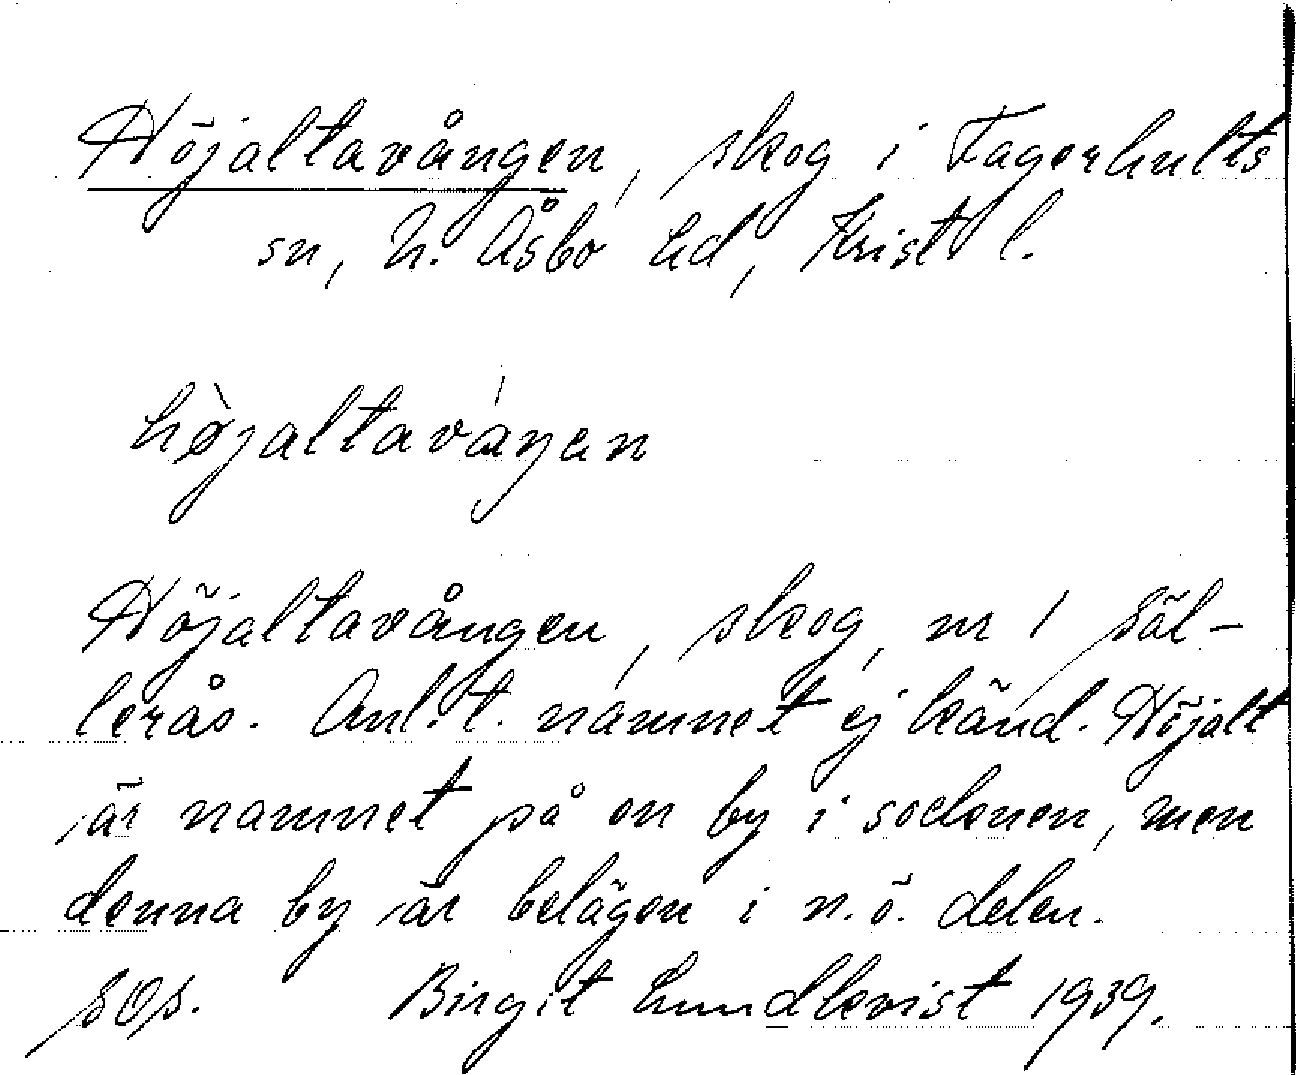 Höjaltavången, skog i Fagerhults
sn, N. Åsbo hd, Krist l.
hø̀jaltaváŋen
Höjaltavången, skog, nr 1 Säl-
lerås. Anl. t. namnet ej känd. Höjalt
är namnet på en by i socknen, men
denna by är belägen i n.ö. delen.
SOS. Birgit Lundkvist 1939.